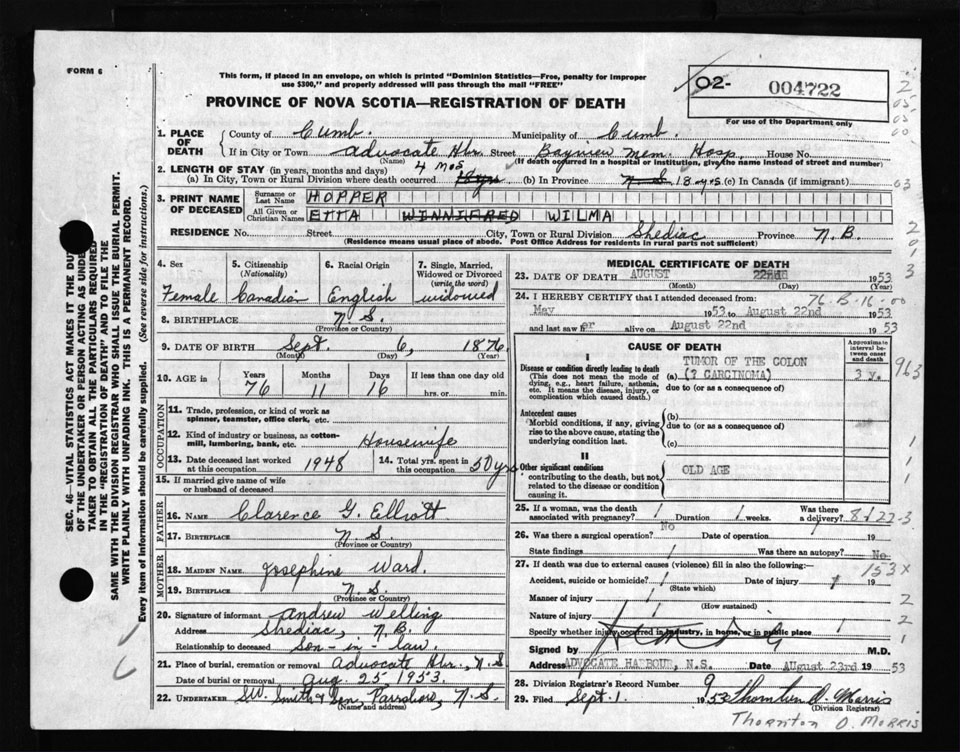 FORM 6
This form, if placed in an envelope, on which is printed "Dominion Statistics—Free, penalty for improper
use $300," and properly addressed will pass through the mail "FREE"
02- 004722
For use of the Department only
PROVINCE OF NOVA SCOTIA—REGISTRATION OF DEATH
SEC. 46—VITAL STATISTICS ACT MAKES IT THE DUTY
OF THE UNDERTAKER OR PERSON ACTING AS UNDER
TAKER TO OBTAIN ALL THE PARTICULARS REQUIRED
IN THE "REGISTRATION OF DEATH" AND TO FILE THE
SAME WITH THE DIVISION REGISTRAR WHO SHALL ISSUE THE BURIAL PERMIT.
WRITE PLAINLY WITH UNFADING INK. THIS IS A PERMANENT RECORD.
Every item of information should be carefully supplied. (See reverse side for instructions.)
1. PLACE OF DEATH County of Cumb. Municipality of Cumb.
If in City or Town Advocate Hbr. Street Bayview Mem. Hosp. House No.
(Name) (If death occurred in a hospital or institution, give the name instead of street and number)
2. LENGTH OF STAY (in years, months and days) 4 Mos
(a) In City, Town or Rural Division where death occurred 18 yrs. (b) In Province N S 18 yrs. (c) In Canada (if immigrant)
3. PRINT NAME OF DECEASED Surname or Last Name HOPPER
All Given or Christian Names ETTA WINNIFRED WILMA
RESIDENCE No. Street City, Town or Rural Division Shediac Province N.B.
(Residence means usual place of abode. Post Office Address for residents in rural parts not sufficient)
4. Sex Female
5. Citizenship (Nationality) Canadian
6. Racial Origin English
7. Single, Married, Widowed or Divorced (write the word) widowed
8. BIRTHPLACE N.S.
(Province or Country)
9. DATE OF BIRTH Sept. 6, 1876.
(Month) (Day) (Year)
10. AGE in Years 76 Months 11 Days 16 If less than one day old hrs. or min.
OCCUPATION
11. Trade, profession, or kind of work as spinner, teamster, office clerk, etc.
12. Kind of industry or business, as cotton-mill, lumbering, bank, etc. Housewife
13. Date deceased last worked at this occupation 1948 14. Total yrs. spent in this occupation 50 yrs
15. If married give name of wife or husband of deceased
FATHER
16. NAME Clarence G. Elliott
17. BIRTHPLACE N.S.
(Province or Country)
MOTHER
18. MAIDEN NAME Josephine Ward.
19. BIRTHPLACE N.S.
(Province or Country)
20. Signature of informant Andrew Welling
Address Shediac, N.B.
Relationship to deceased Son-in-law.
21. Place of burial, cremation or removal Advocate Hbr., N.S
Date of burial or removal Aug. 25, 1953.
22. UNDERTAKER Smith & Son, Parrsboro, N.S.
(Name and address)
MEDICAL CERTIFICATE OF DEATH
23. DATE OF DEATH AUGUST 22nd 1953
(Month) (Day) (Year)
76-B-16-00
24. I HEREBY CERTIFY that I attended deceased from:
May 1953 to August 22nd 1953
and last saw er alive on August 22nd 1953
CAUSE OF DEATH
Approximate interval between onset and death
I
Disease or condition directly leading to death
(This does not mean the mode of dying, e.g., heart failure, asthenia, etc. It means the disease, injury, or complication which caused death.)
(a) TUMOR OF THE COLON (? CARCINOMA) 3 y.
due to (or as a consequence of)
Antecedent causes
Morbid conditions, if any, giving rise to the above cause, stating the underlying condition last.
(b)
due to (or as a consequence of)
(c)
II
Other significant conditions
contributing to the death, but not related to the disease or condition causing it.
OLD AGE
25. If a woman, was the death associated with pregnancy? Duration weeks. Was there a delivery?
26. Was there a surgical operation? No Date of operation 19
State findings Was there an autopsy? No
27. If death was due to external causes (violence) fill in also the following:
Accident, suicide or homicide? Date of injury 19
(State which)
Manner of injury
(How sustained)
Nature of injury
Specify whether injury occurred in industry, in home, or in public place
Signed by M.D.
Address ADVOCATE HARBOUR, N.S. Date August 23rd 1953
28. Division Registrar's Record Number 9
29. Filed Sept. 1. 1953 Thornton D. Morris
(Division Registrar)
THORNTON D. MORRIS